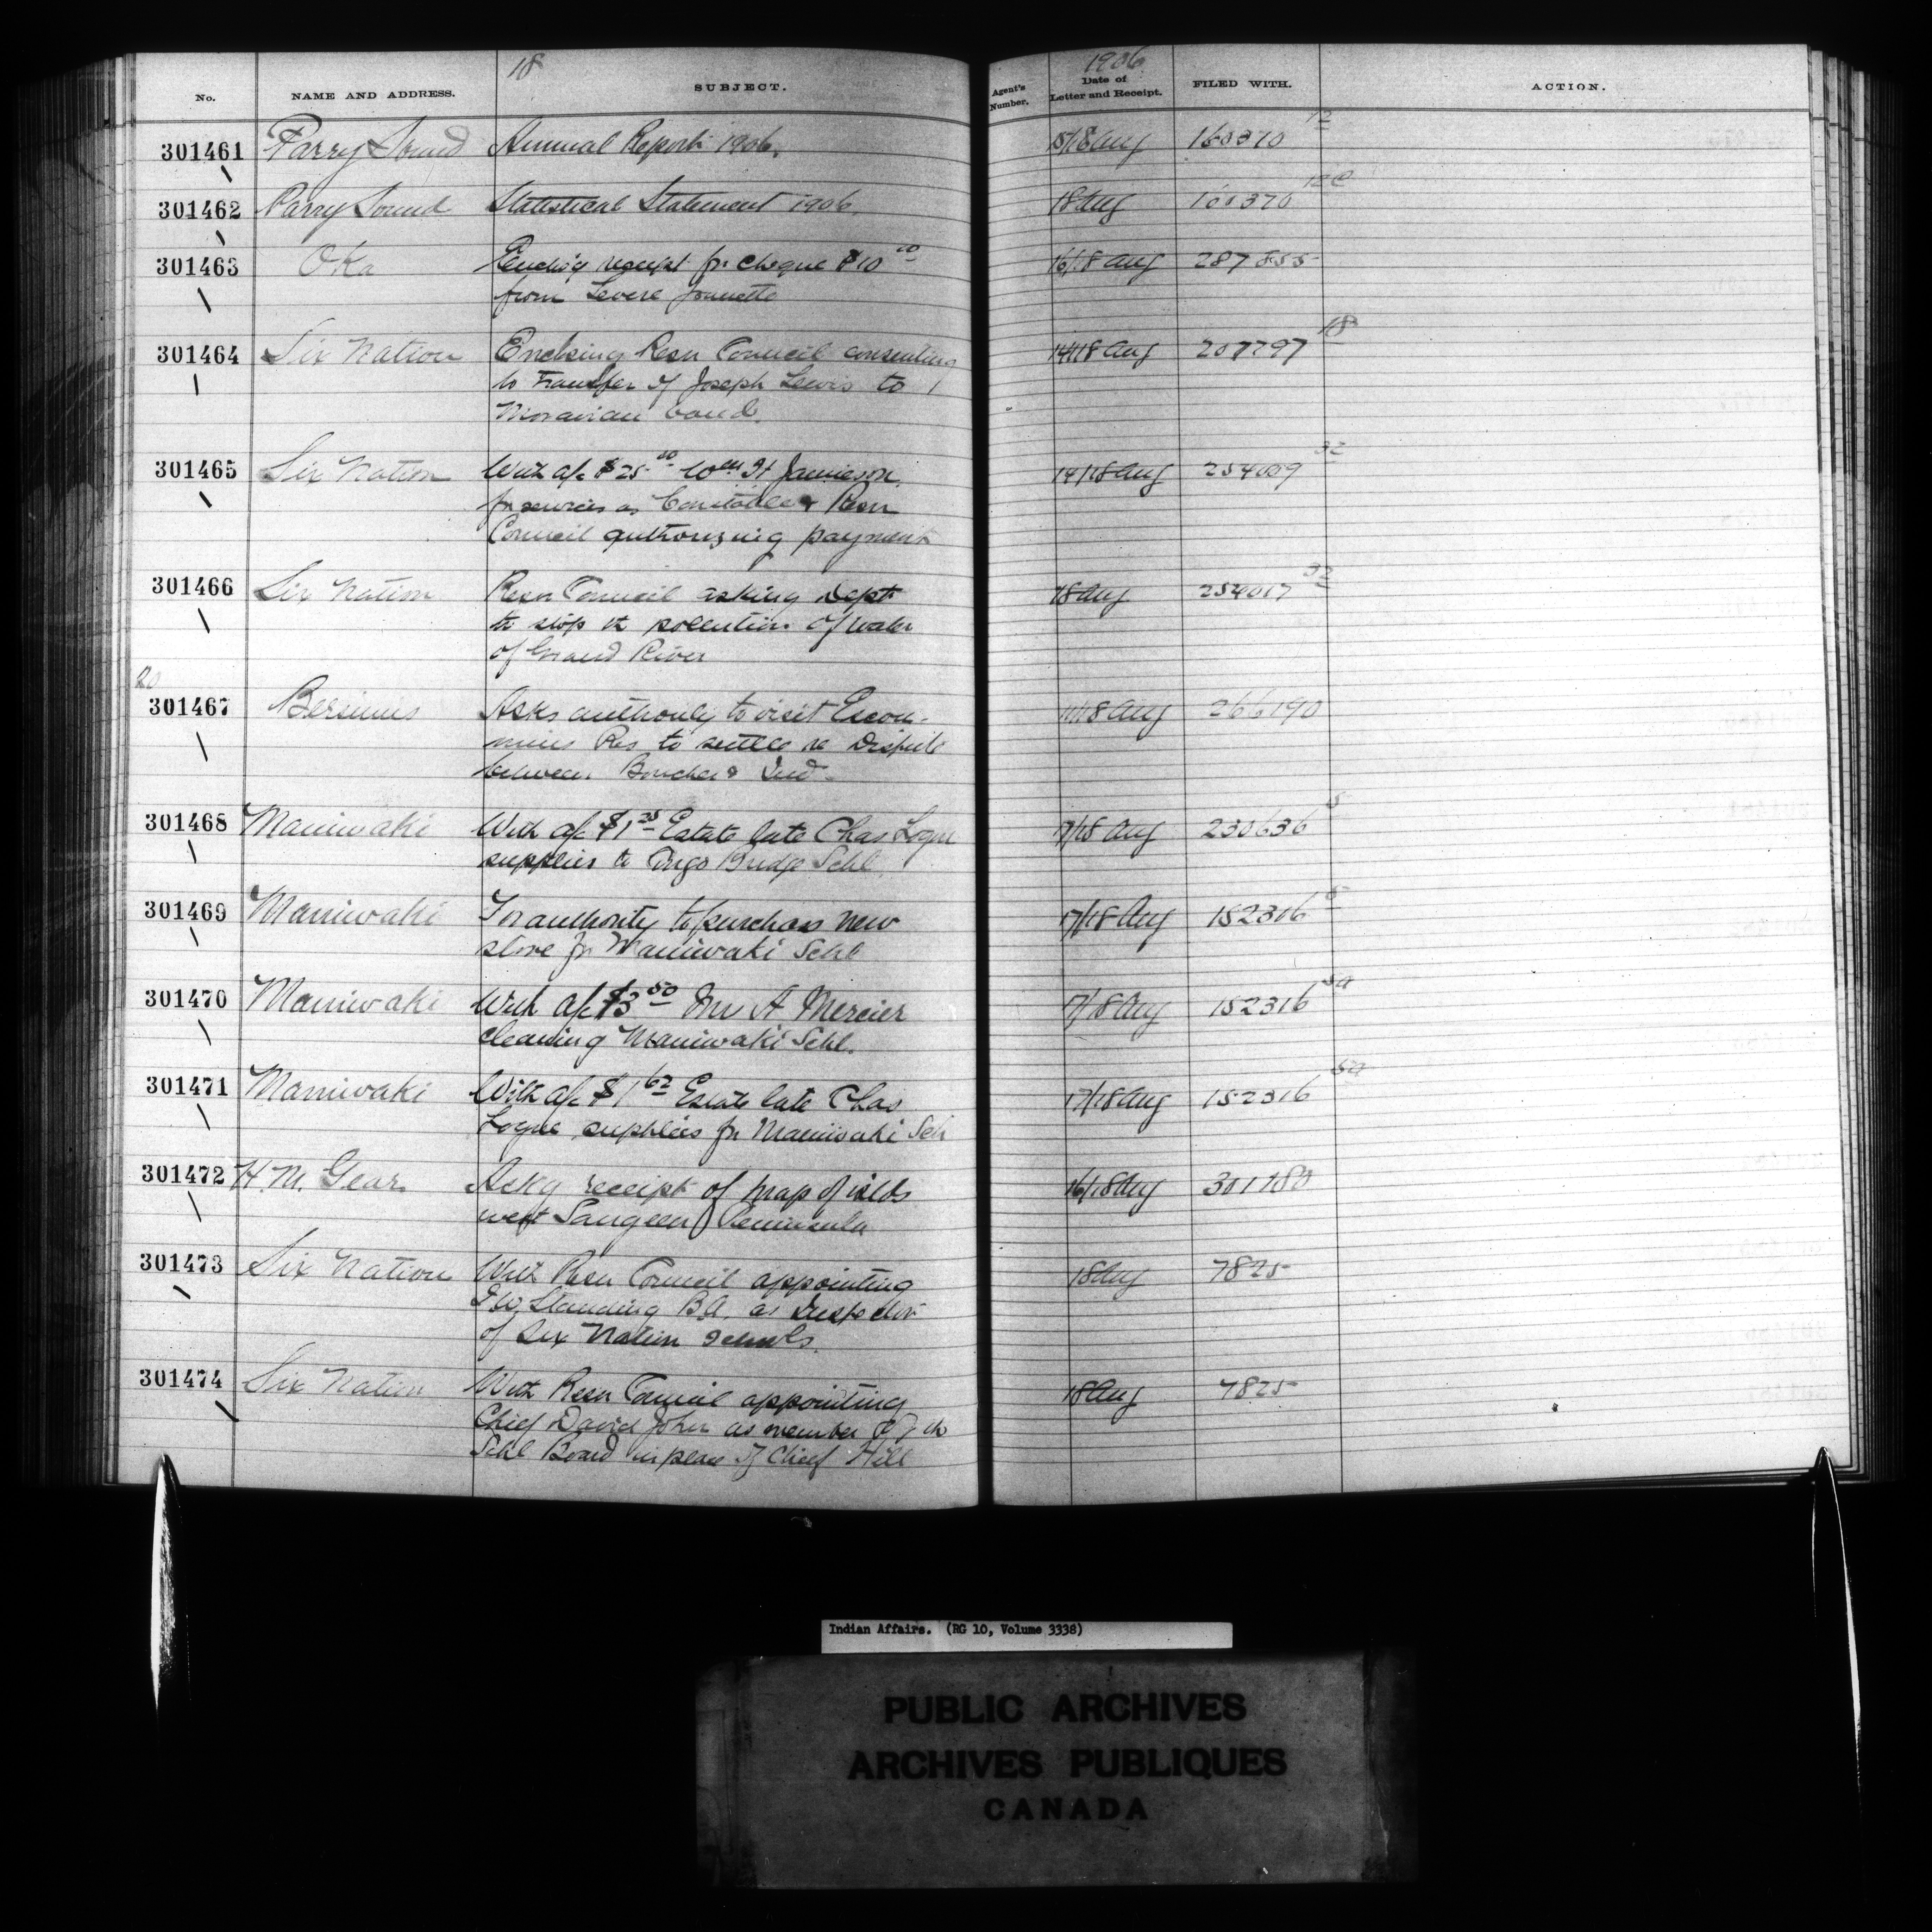 18
1906
No. NAME AND ADDRESS. SUBJECT. Agent's Number. Date of Letter and Receipt. FILED WITH. ACTION.
301461 Parry Sound Annual Report 1906. 18 Aug 160370 12
301462 Parry Sound Statistical Statement 1906 18 Aug 160370 12C
301463 Oka receipt for cheque $10 00 16/18 Aug 287855
from
301464 Six Nation Enclosing Resn Council consenting 14/18 Aug 207797 18
to transfer of Joseph Lewis to
Moravian band.
301465 Six Nation With a/c $25 00 Wm H Jamieson 14/18 Aug 254009 32
for services as Constable & Resn
Council authorizing payment
301466 Six Nation Resn Council asking Dept 18 Aug 254017 32
to stop pollution of water
of Grand River
20
301467 Bersimis Asks authority to visit Escou- 18 Aug 266190
mins Res to settle re dispute
between Boucher & Ind
301468 Maniwaki With a/c $1 25 Estate late Chas Logue 17/18 Aug 230636 5
supplies to Bridge Schl
301469 Maniwaki For authority to purchase new 17/18 Aug 152316
stove for Maniwaki Schl
301470 Maniwaki With a/c $3 50 A Mercier 17/18 Aug 152316 5a
cleaning Maniwaki Schl.
301471 Maniwaki With a/c $1 62 Estate late Chas 17/18 Aug 152316 5a
Logue supplies for Maniwaki Sch
301472 H. M. Gear Ackg receipt of map of islds 16/18 Aug 301180
west Saugeen Peninsula
301473 Six Nation With Resn Council appointing 18 Aug 7825
T W. Standing B.A. as Inspector
of Six Nation schools.
301474 Six Nation With Resn Council appointing 18 Aug 7825
Chief David John as member of
Schl Board in place of Chief Hill
Indian Affairs. (RG 10, Volume 3338)
PUBLIC ARCHIVES
ARCHIVES PUBLIQUES
CANADA